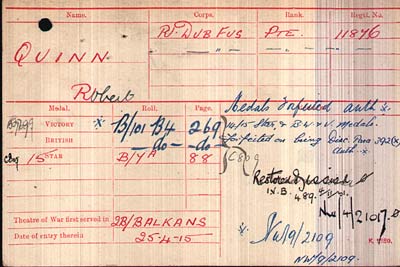 Name. Corps. Rank. Regtl. No.
QUINN R. Dub Fus Pte. 11876
Robert
Medal. Roll. Page.
VICTORY * B/101 B4 269
BRITISH — do — do —
15 STAR B/7A 88
Medals forfeited auth *
1915 Star, & B.W. & V. Medals.
Forfeited on being Disc. Para 392(x)
auth *
Restored
IX.B. 489.
NW/4/21017.
Theatre of War first served in 2B/BALKANS
Date of entry therein 25-4-15
* NW/9/2109
NW/9/2109.
K. 1380.